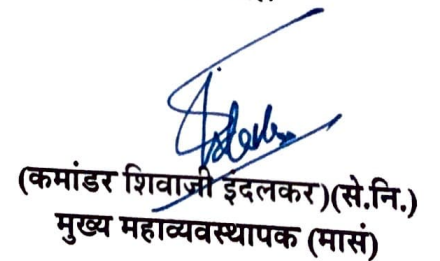 (कमांडर शिवाजी इंदलकर)(से.नि.)
मुख्य महाव्यवस्थापक (मासं)